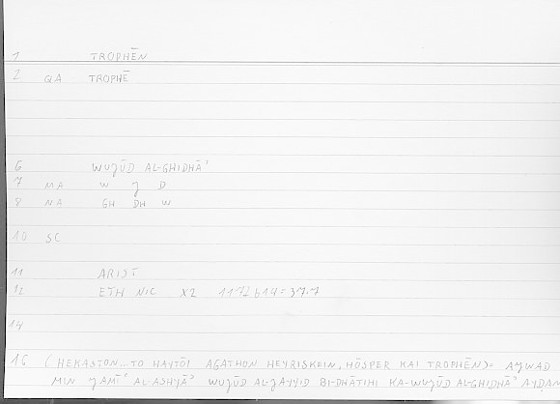 1 TROPHĒN
2 QA TROPHĒ
6 WUJŪD AL-GHIDHĀʾ
7 MA W J D
8 NA GH DH W
10 SC
11 ARIST
12 ETH NIC X2 1172 b14 = 37.7
14
16 (HEKASTON... TO HAYTŌI AGATHON HEYRISKEIN, HŌSPER KAI TROPHĒN) = AJWAD
MIN JAMĪʿ AL-ASHYĀʾ WUJŪD AL-JAYYID BI-DHĀTIHI KA-WUJŪD AL-GHIDHĀʾ AYḌAN